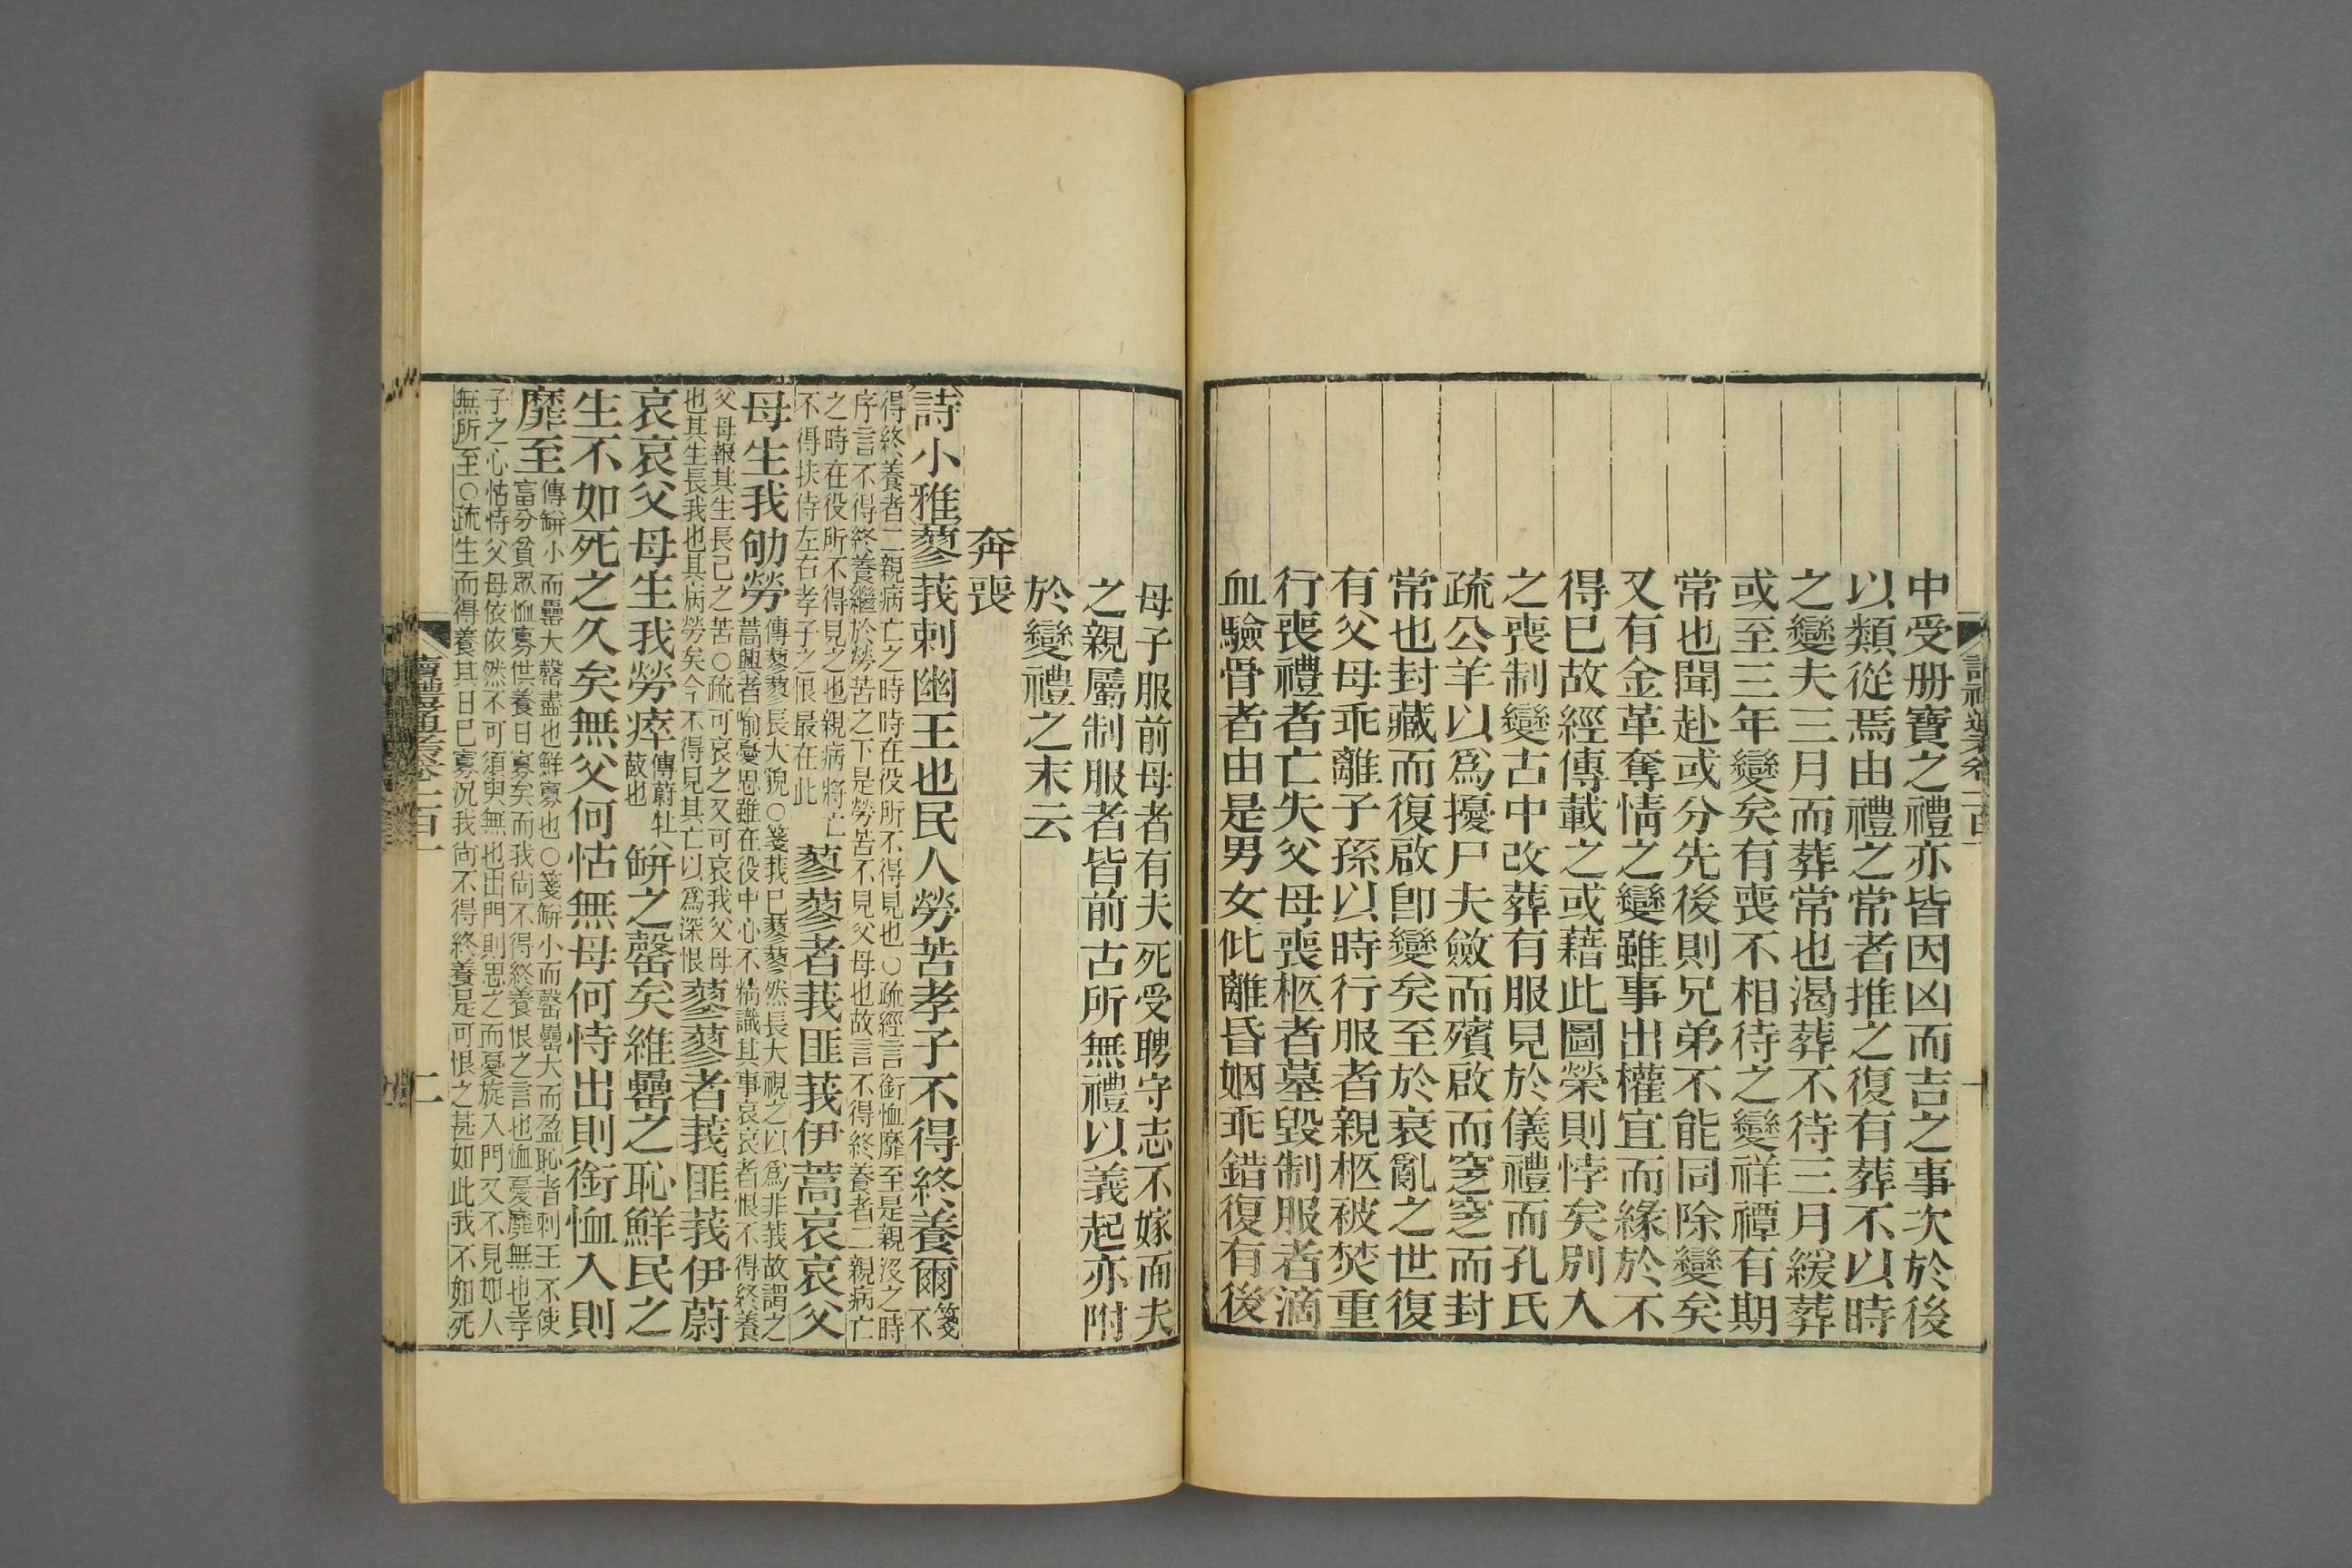 中受册寶之禮亦皆因凶而吉之事次於後
以類從焉由禮之常者推之復有葬不以時
之變夫三月而葬常也渴葬不待三月緩葬
或至三年變矣有喪不相待之變祥禫有期
常也聞赴或分先後則兄弟不能同除變矣
又有金革奪情之變雖事出權宜而緣於不
得已故經傳載之或藉此圖榮則悖矣別入
之喪制變古中改葬有服見於儀禮而孔氏
疏公羊以爲擾尸夫斂而殯啟而窆窆而封
常也封藏而復啟卽變矣至於衰亂之世復
有父母乖離子孫以時行服者親柩被焚重
行喪禮者亡失父母喪柩者墓毀制服者滴
血驗骨者由是男女仳離昏姻乖錯復有後
母子服前母者有夫死受聘守志不嫁而夫
之親屬制服者皆前古所無禮以義起亦附
於變禮之末云
奔喪
詩小雅蓼莪刺幽王也民人勞苦孝子不得終養爾箋不
得終養者二親病亡之時時在役所不得見也○疏經言銜恤靡至是親沒之時
序言不得終養繼於勞苦之下是勞苦不見父母也故言不得終養者二親病亡
之時在役所不得見之也親病將亡
不得扶侍左右孝子之恨最在此
蓼蓼者莪匪莪伊蒿哀哀父
母生我劬勞傳蓼蓼長大貌○箋莪已蓼蓼然長大視之以爲非莪故謂之
蒿興者喻憂思雖在役中心不精識其事哀哀者恨不得終養
父母報其生長己之苦○疏可哀之又可哀我父母
也其生長我也其病勞矣今不得見其亡以爲深恨
蓼蓼者莪匪莪伊蔚
哀哀父母生我勞瘁傳蔚牡
菣也
缾之罄矣維罍之恥鮮民之
生不如死之久矣無父何怙無母何恃出則銜恤入則
靡至傳缾小而罍大罄盡也鮮寡也○箋缾小而罄罍大而盈恥者刺王不使
富分貧眾恤寡供養日寡矣而我尙不得終養恨之言也恤憂靡無也孝
子之心怙恃父母依依然不可須臾無也出門則思之而憂旋入門又不見如入
無所至○疏生而得養其日已寡況我尙不得終養是可恨之甚如此我不如死